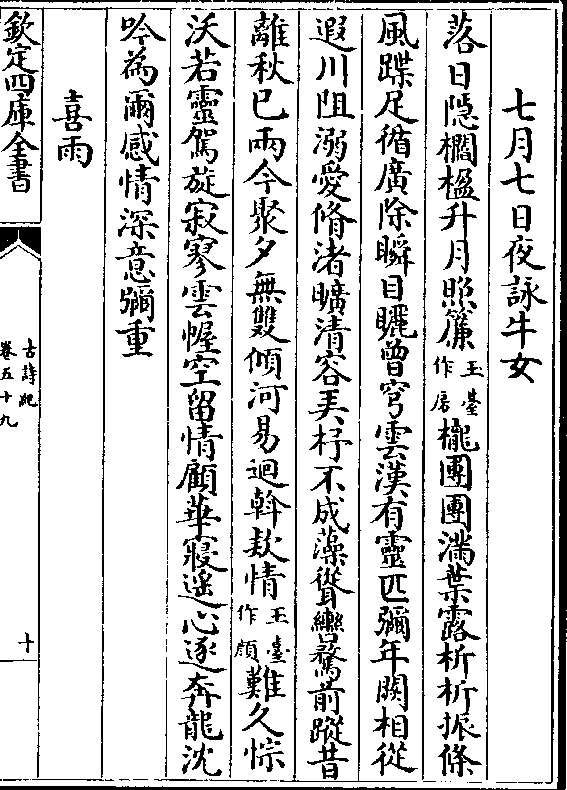 七月七日夜詠牛女
落日隠櫩楹升月照簾玉臺作房櫳團團滿葉露析析振條
風蹀足循廣除瞬目矖曾穹雲漢有靈匹彌年闕相從
遐川阻溺愛脩渚曠清容弄杼不成藻聳轡騖前蹤昔
離秋已兩今聚夕無雙傾河易迴斡欵情玉臺作顔難久悰
沃若靈駕旋寂寥雲幄空留情顧華寢遥心逐奔龍沈
吟為爾感情深意彌重
喜雨
欽定四庫全書
古詩紀
卷五十九
十